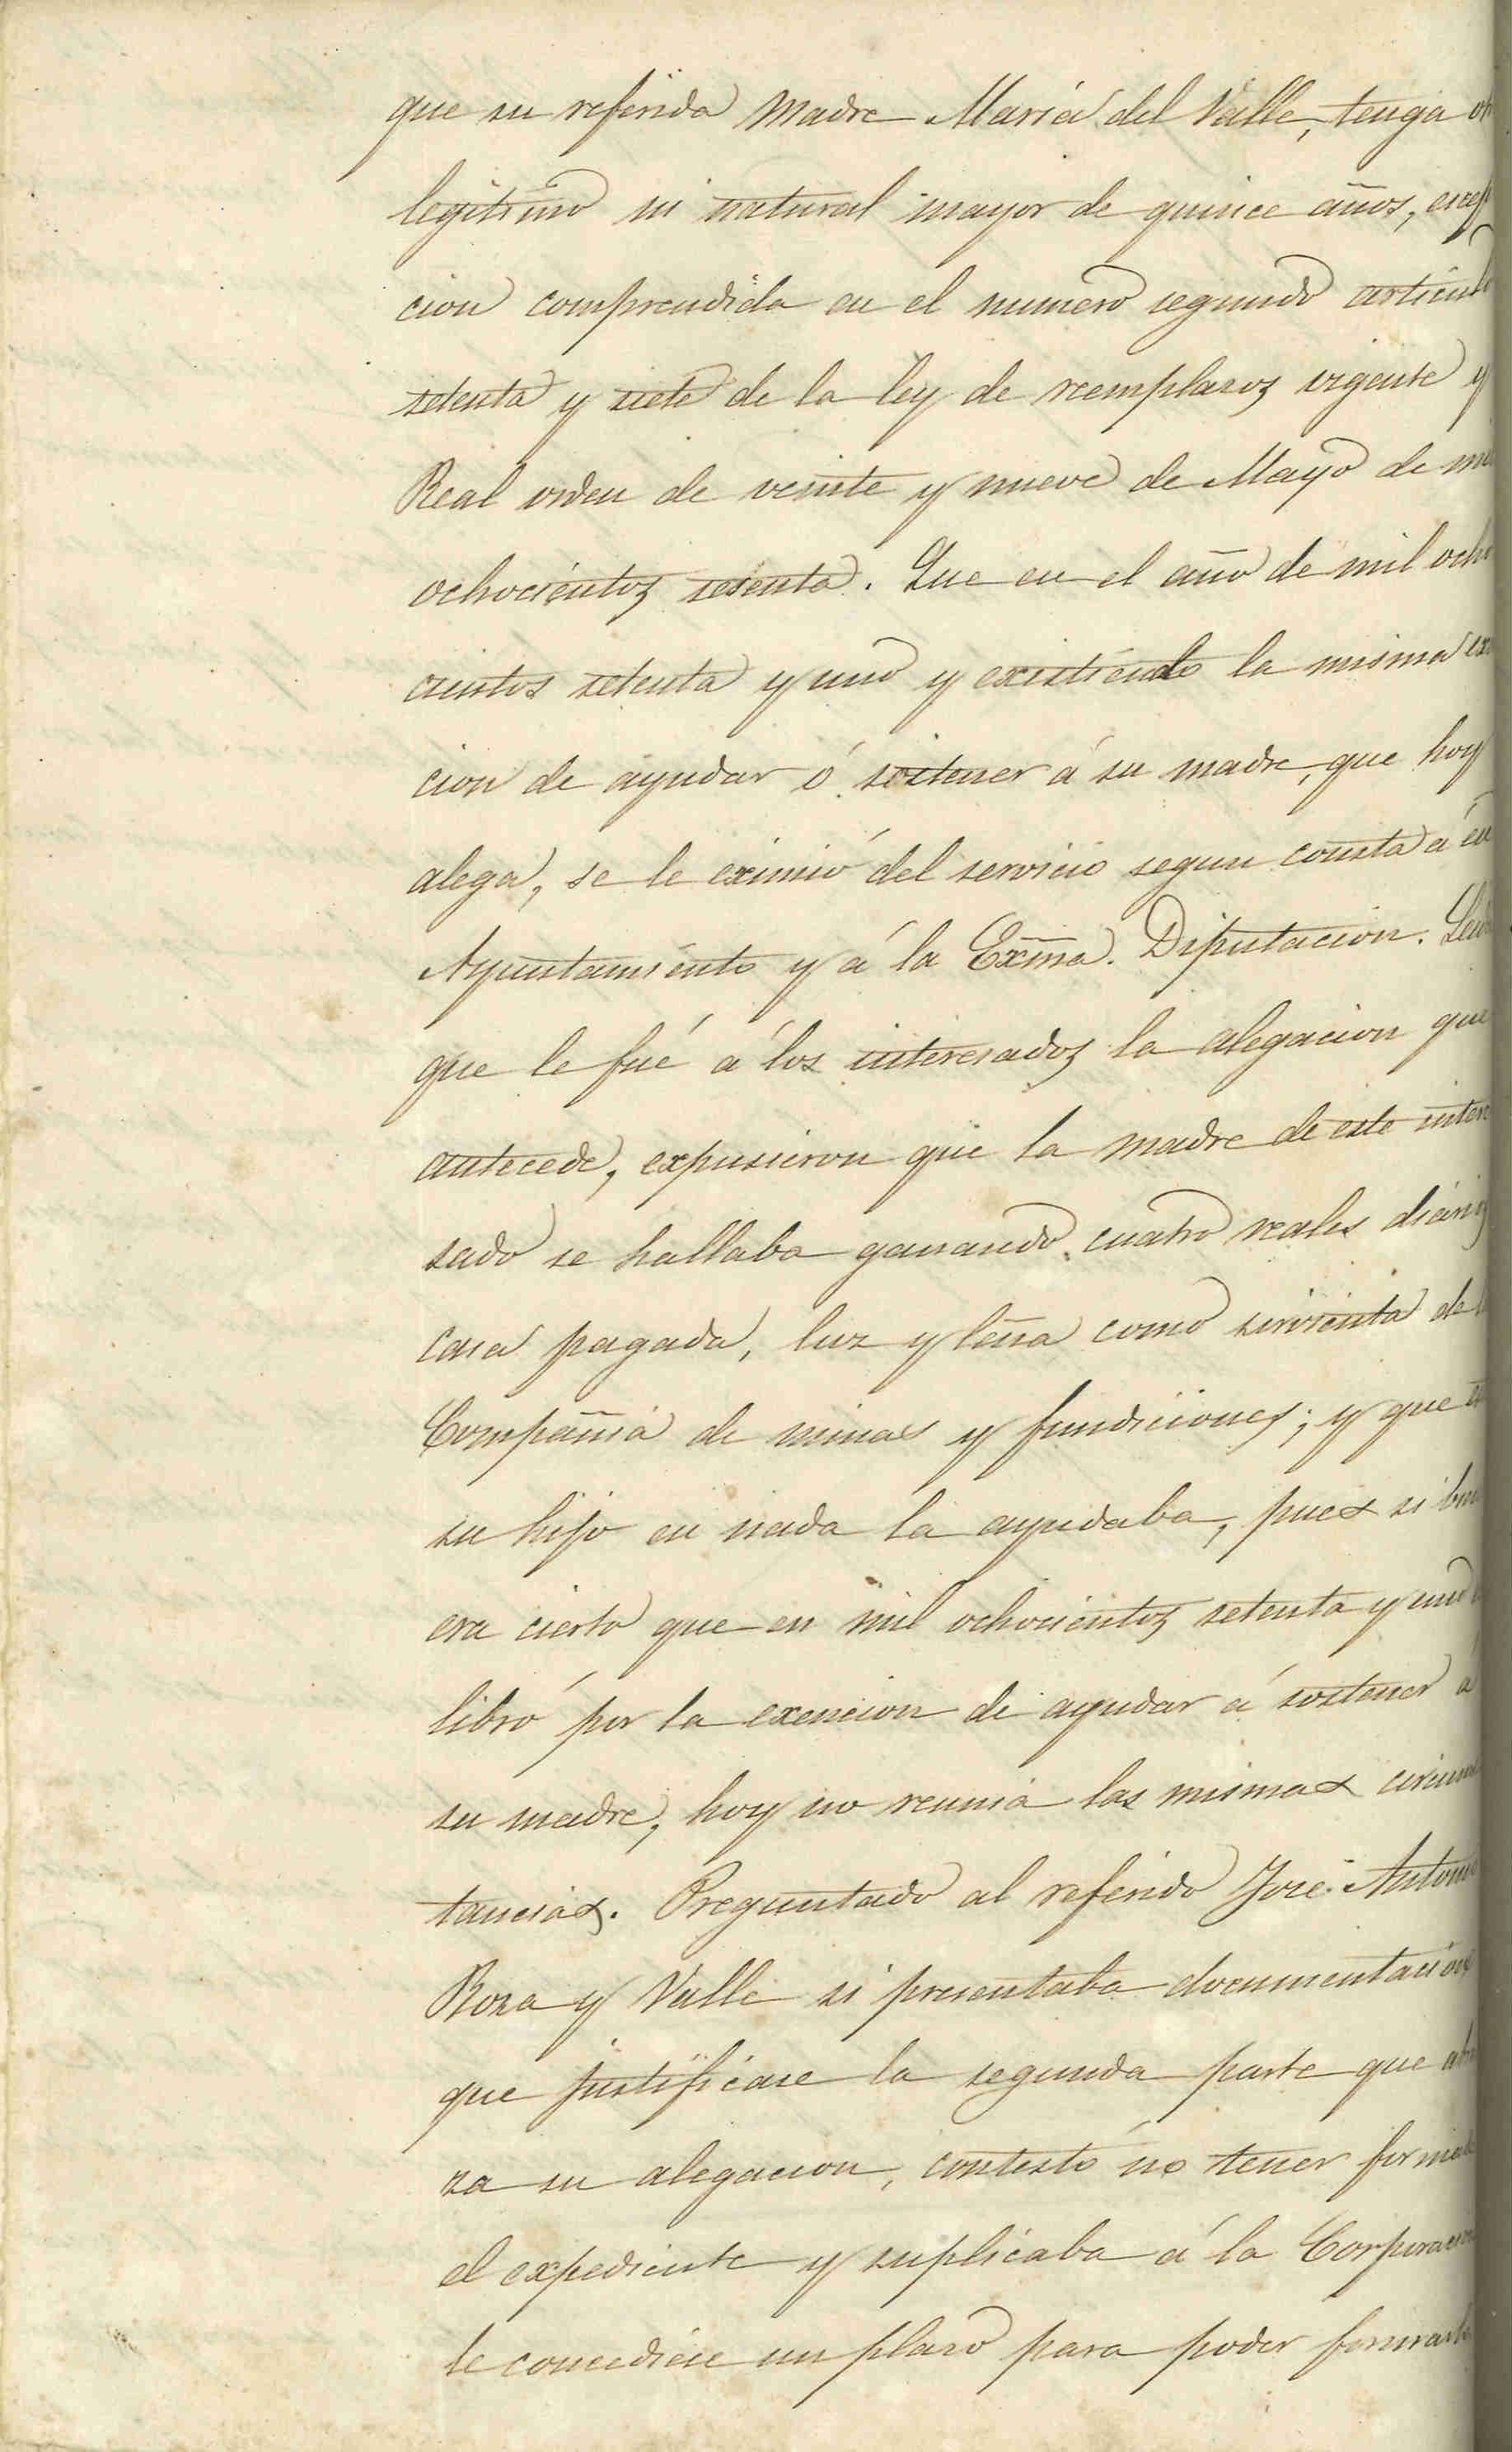 que su referida Madre María del Valle, tenga
legítimo ni natural mayor de quince años, escep
cion comprendida en el numero segundo artículo
setenta y siete de la ley de reemplazos vigente y
Real orden de veinte y nueve de Mayo de mil
ochocientos sesenta. Que en el año de mil ocho
cientos setenta y uno y existiendo la misma
cion de ayudar ó sostener á su madre, que hoy
alega, se le eximió del servicio segun consta á
Ayuntamiento y á la Exma. Diputacion.
que le fué á los interesados la alegacion que
antecede, expusieron que la madre de este intere
sado se hallaba ganando cuatro reales diarios
casa pagada, luz y leña como sirvienta de
Compañía de minas y fundiciones; y que
su hijo en nada la ayudaba, pues si
era cierto que en mil ochocientos setenta y uno
libró por la exencion de ayudar á sostener á
su madre, hoy no reunia las mismas circuns
tancias. Preguntado al referido José Antonio
Roza y Valle si presentaba documentacion
que justificase la segunda parte que
za su alegacion, contestó no tener formado
el expediente y suplicaba á la Corporacion
le concediese un plazo para poder formarlo